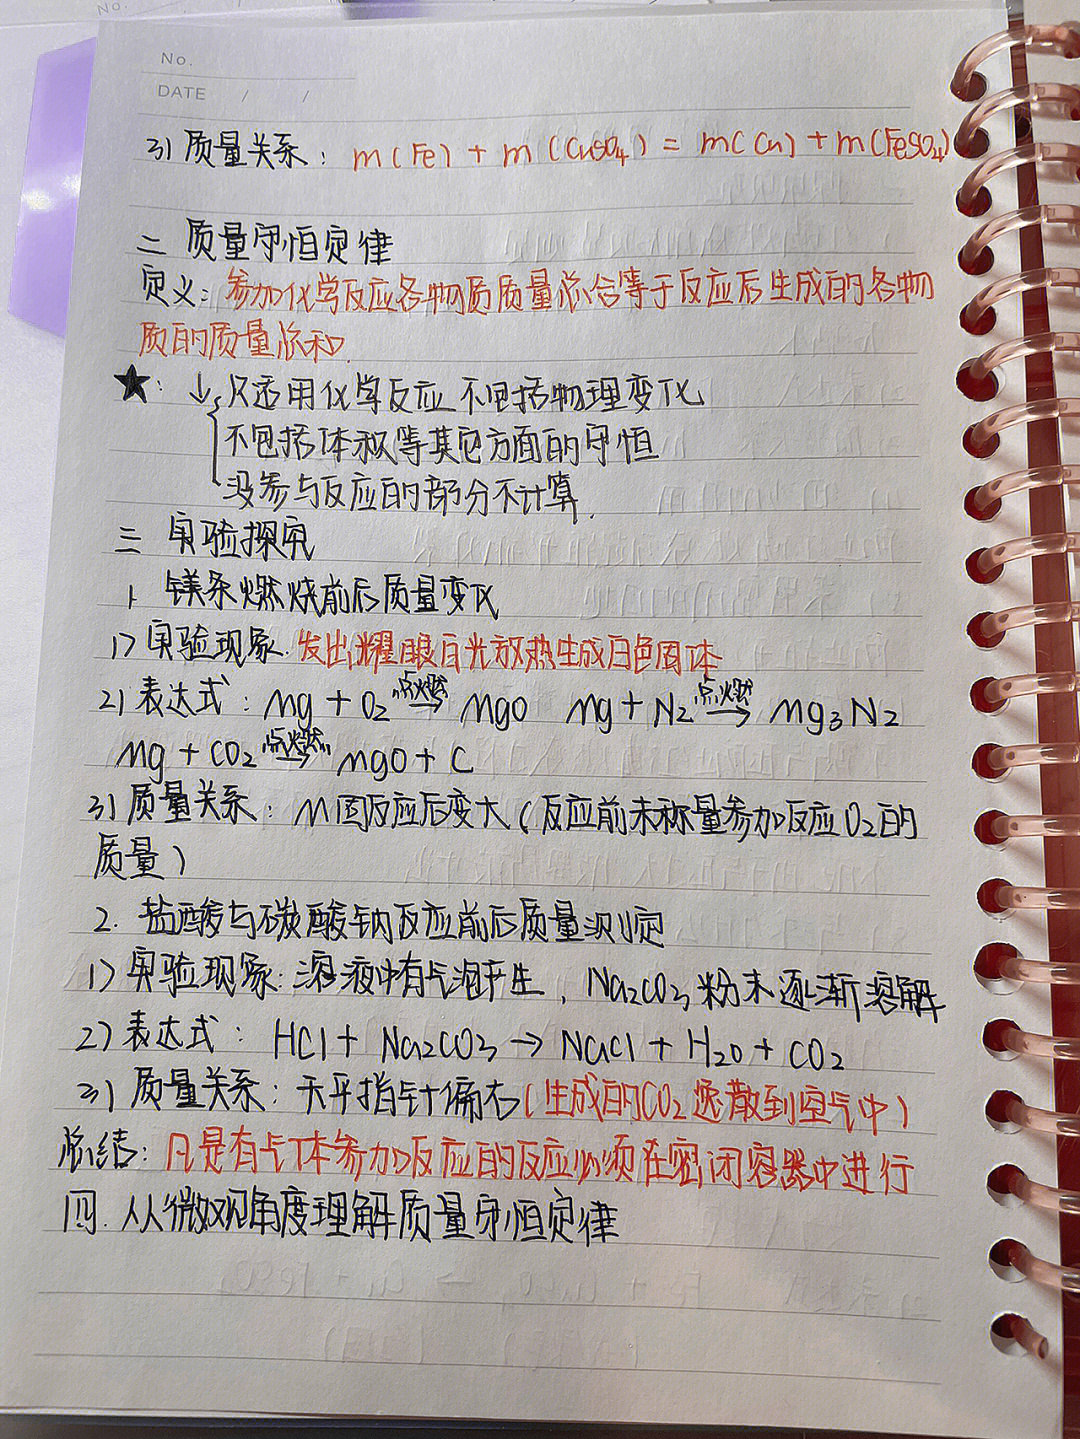 No.
No.
DATE / /
3) 质量关系: m(Fe) + m(CuSO4) = m(Cu) + m(FeSO4)
二 质量守恒定律
定义: 参加化学反应各物质质量总合等于反应后生成的各物
质的质量总和.
★: 只适用化学反应 不包括物理变化
不包括体积等其它方面的守恒
没参与反应的部分不计算.
三 实验探究
1. 镁条燃烧前后质量变化
1) 实验现象: 发出耀眼白光放热生成白色固体
2) 表达式: Mg + O2 点燃→ MgO Mg + N2 点燃→ Mg3N2
Mg + CO2 点燃→ MgO + C
3) 质量关系: M固反应后变大(反应前未称量参加反应O2的
质量)
2. 盐酸与碳酸钠反应前后质量测定
1) 实验现象: 溶液中有气泡产生, Na2CO3粉末逐渐溶解
2) 表达式: HCl + Na2CO3 → NaCl + H2O + CO2
3) 质量关系: 天平指针偏右(生成的CO2逸散到空气中)
总结: 凡是有气体参加反应的反应必须在密闭容器中进行
四. 从微观角度理解质量守恒定律